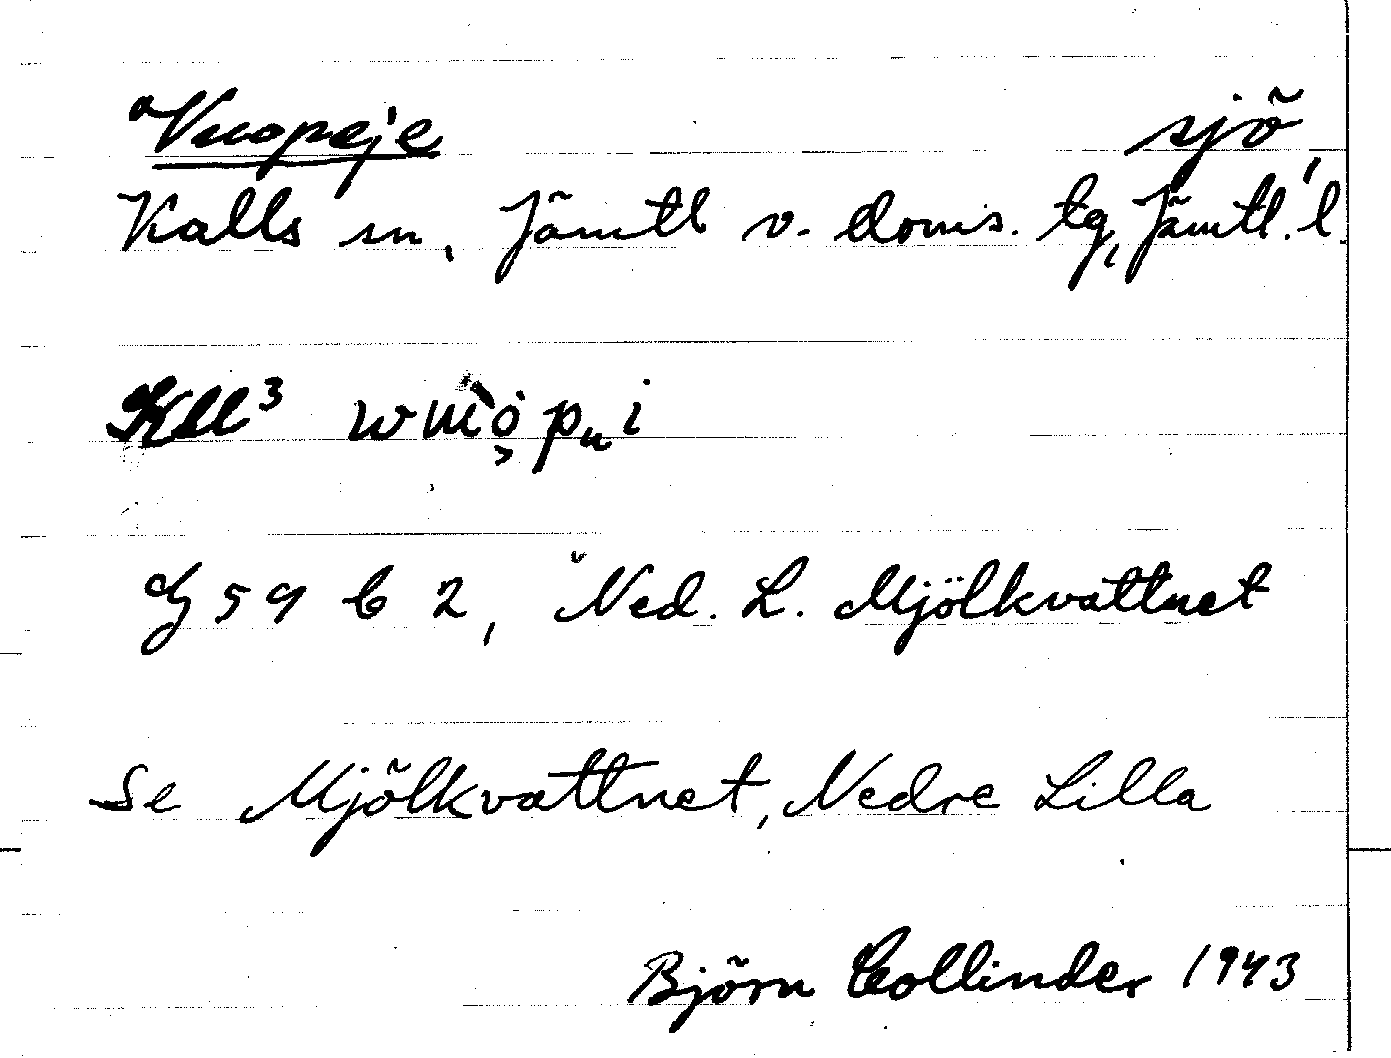 "Vuopeje sjö
Kalls sn, Jämtl v. doms. tg, Jämtl. l.
Kll³
G 59 b 2, "Ned. L. Mjölkvattnet
Se Mjölkvattnet, Nedre Lilla
Björn Collinder 1943